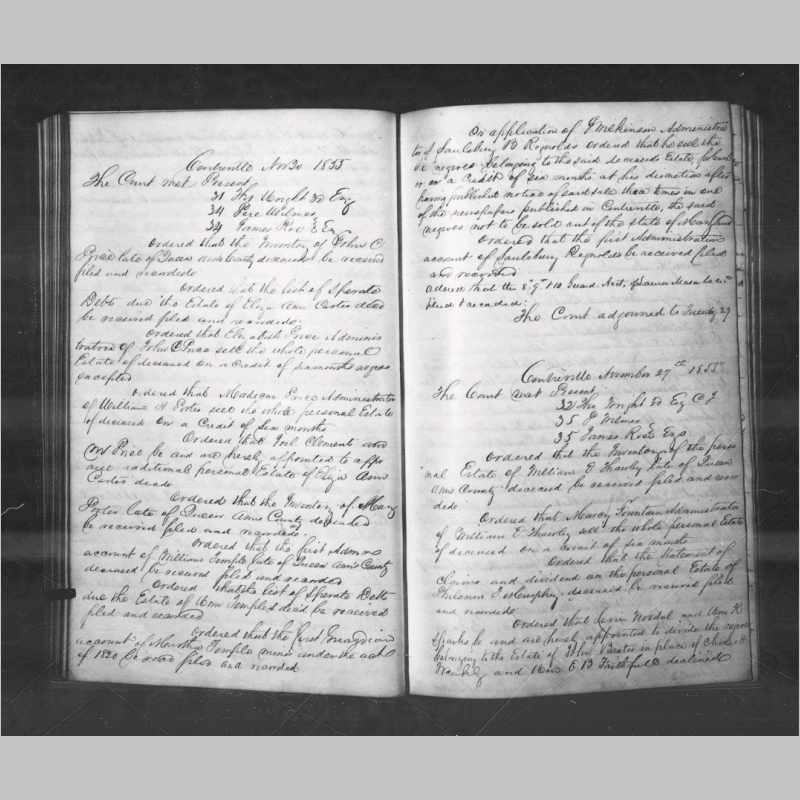 Centreville Nov 20 1855
The Court met Present
31 Thos Wright 3d Esq
34 Pere Wilmer
34 James Roe E Es
Ordered that the Inventory of John C
Price late of Queen Anns County deceased be received
filed and recorded
Ordered that the list of Sperate
Debts due the Estate of Eliza Ann Carter decd
be received filed and recorded.
Ordered that Elizabeth Price Adminis
tratrix of John C Price sell the whole personal
Estate of deceased on a credit of six months negroes
excepted
Ordered that Madison Price Administrator
of William H Porter sell the whole personal Estate
of deceased on a Credit of Six months
Ordered that Joel Clements and
Wm Price be and are hereby appointed to appr
aise additional personal Estate of Eliza Ann
Carter decd
Ordered that the Inventory of Mary
Porter late of Queen Anns County deceased
be received filed and recorded.
Ordered that the first Admns
account of William Temple late of Queen Anns County
deceased be received filed and recorded
Ordered that the list of Sperate Debts
due the Estate of Wm Temple decd be received
filed and recorded
Ordered that the first Guardian
account of Martha Temple minor under the act
of 1820 be filed and recorded
On application of J Wilkinson Administra
tor of Saulsbury B Reynolds ordered that he sell the
negroes belonging to the said deceaseds Estate, for
or on a Credit of Six months at his discretion after
having published notice of said sale three times in one
of the newspapers published in Centreville, the said
negroes not to be sold out of the state of Maryland
Ordered that the first Administration
account of Saulsbury Reynolds be received filed
and recorded
Ordered that the 8 9th & 10 Guard Acct. of
filed & recorded:
The Court adjourned to Tuesday 27
Centreville November 27th 1855
The Court met Present
32 Thos Wright 3d Esq C J
35 P Wilmer
35 James Roe Esqs
Ordered that the Inventory of the perso
nal Estate of William E Thawley late of Queen
Anns County deceased be received filed and recor
ded
Ordered that Marcy Fountain Administrator
of William E Thawley sell the whole personal Estate
of deceased on a credit of six months
Ordered that the Statement of
Claims and dividend on the personal Estate of
Philemon T Murphy deceased be received filed
and recorded
Ordered that and Wm H
Sparks be and are hereby appointed to divide the negroes
belonging to the Estate of John Baxter in place of Charles H
and Wm E B Faithful declined